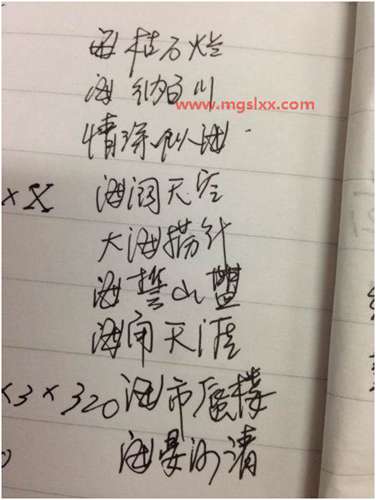 海枯石烂
海纳百川
www.mgslxx.com
情深似海
×X 海阔天空
大海捞针
海誓山盟
海角天涯
×3×320 海市蜃楼
海晏河清